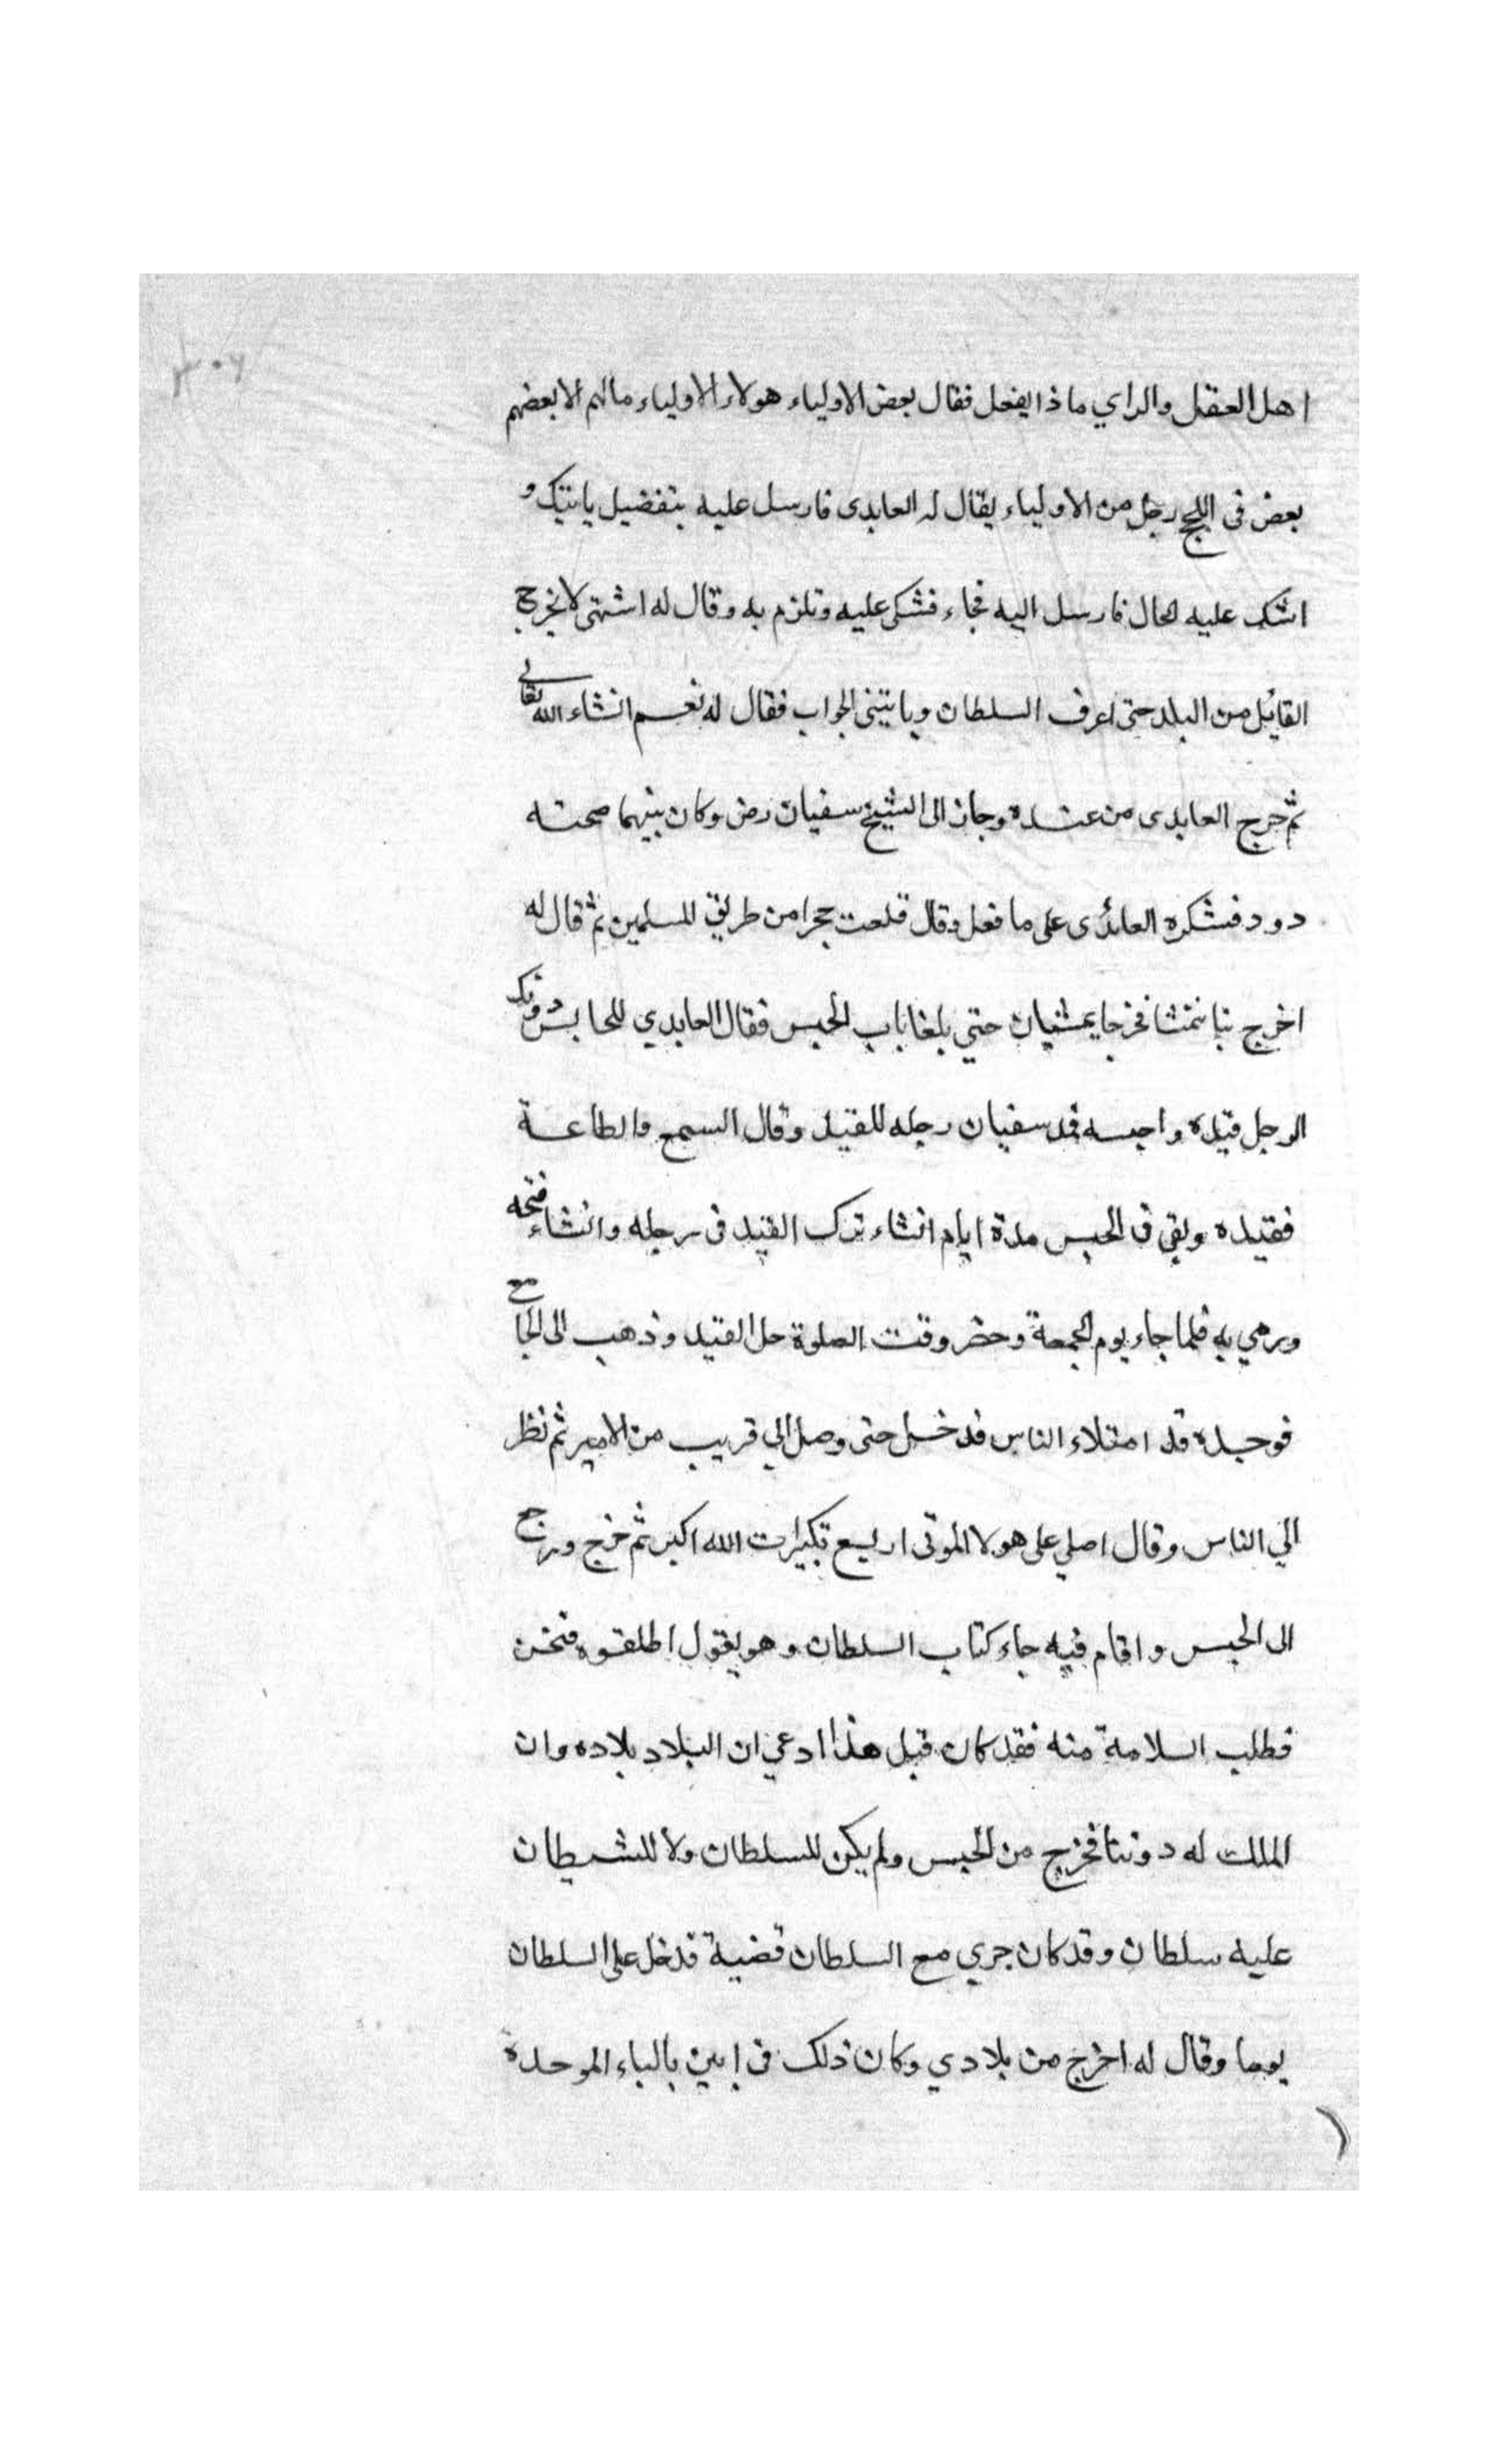 ٢٠٧
اهل العقل والراي ماذا يفعل فقال بعض الاولياء هولاء الاولياء مالهم الا بعضهم
بعض في اللج رجل من الاولياء يقال له العابدى فارسل عليه بتفضيل ياتيك و
اشك عليه الحال فارسل اليه فجاء فشكى عليه وتلزم به وقال له اشتهى لا يخرج
القايل من البلد حتى اعرف السلطان وياتيني الجواب فقال له نعم انشاء الله تعالى
ثم خرج العابدى من عنده وجاز الى الشيخ سفيان رض وكان بينهما صحته
دود فشكره العائدى على ما فعل وقال قلعت حجرا من طريق المسلمين ثم قال له
اخرج بنا نتمشا فخرجا يمشيان حتي بلغا باب الحبس فقال العابدي للحابس دونك
الرجل قيده واحبسه فمد سفيان رجله للقيد وقال السمع والطاعة
فقيده وبقي في الحبس مدة ايام انشاء ترك القيد في رجله وانشاء فتحه
ورمي به فلما جاء يوم الجمعة وحضر وقت الصلوة حل القيد وذهب الى الجامع
فوجده قد امتلاء الناس فدخل حتى وصل الي قريب من الامير ثم نظر
الي الناس وقال اصلي على هولا الموتى اربع تكبيرات الله اكبر ثم خرج ورجع
الى الحبس واقام فيه جاء كتاب السلطان وهو يقول اطلقوه فنحن
فطلب السلامة منه فقد كان قبل هذا ادعي ان البلاد بلاده وان
الملك له دوننا فخرج من الحبس ولم يكن للسلطان ولا للشيطان
عليه سلطان وقد كان جري مع السلطان قضية قدخل على السلطان
يوما وقال له اخرج من بلادي وكان ذلك في ابين بالباء الموحدة